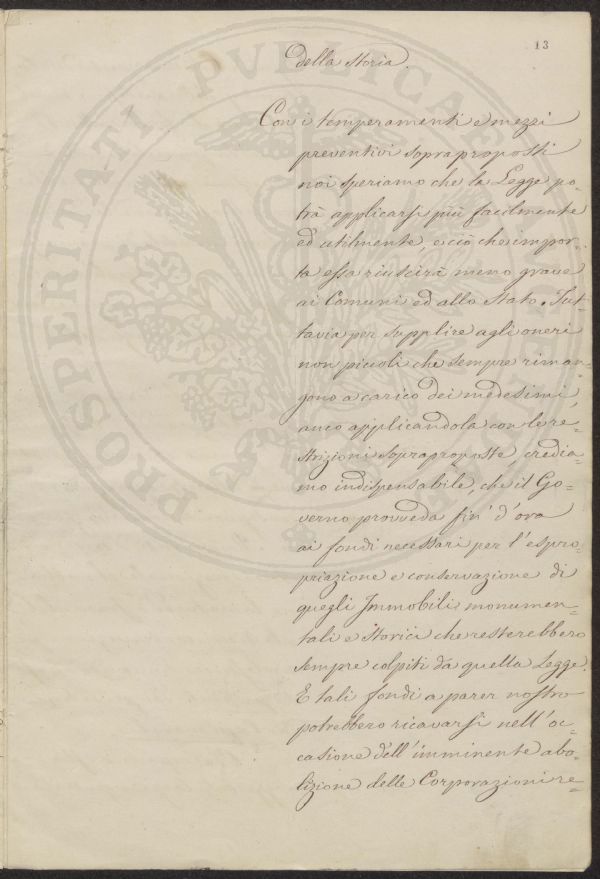 13
della Storia.
Con i temperamenti e mezzi
preventivi sopraproposti
noi speriamo che la Legge po-
trà applicarsi più facilmente
ed utilmente, e ciò che impor-
ta essa riuscirà meno grave
ai Comuni ed allo Stato. Tut-
tavia per supplire agli oneri
non piccoli che sempre riman-
gono a carico dei medesimi,
anco applicandola con le re-
strizioni sopraproposte, credia-
mo indispensabile, che il Go-
verno provveda fin' d'ora
ai fondi necessari per l'espro-
priazione e conservazione di
quegli Immobili monumen-
tali e Storici che resterebbero
sempre colpiti da quella Legge.
E tali fondi a parer nostro
potrebbero ricavarsi nell'oc-
casione dell'imminente abo-
lizione delle Corporazioni re-
PROSPERITATI PVBLICAE